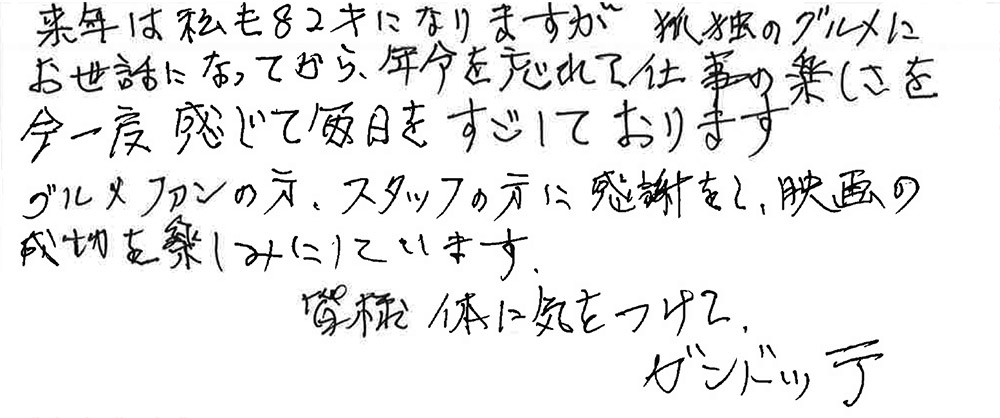 来年は私も82才になりますが 孤独のグルメに
お世話になってから、年令を忘れて仕事の楽しさを
今一度 感じて毎日を すごしております
グルメファンの方、スタッフの方に感謝をし、映画の
成功を楽しみにしています。
皆様 体に気をつけて、
ガンドッ